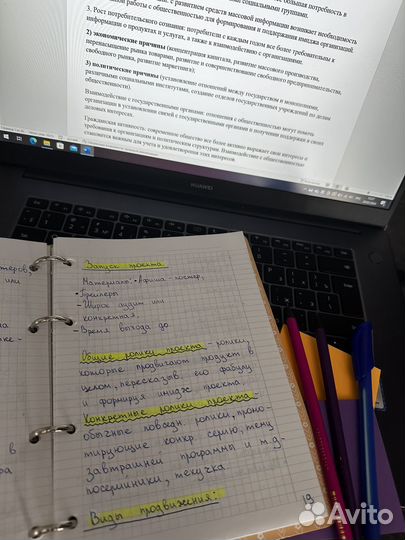 с развитием средств массовой информации возникает необходимость
работы с общественностью для формирования и поддержания имиджа организаций.
3. Рост потребительского сознания: потребители с каждым годом все более требовательны к
информации о продуктах и услугах, а также к взаимодействию с организациями.
2) экономические причины (концентрация капитала, развитие массового производства,
перенасыщение рынка товарами, развитие и совершенствование свободного предпринимательства,
свободного рынка, развитие маркетинга);
3) политические причины (установление отношений между государством и монополиями,
различными социальными институтами, создание отделов государственных учреждений по делам
общественности).
Взаимодействие с государственными органами: отношения с общественностью могут помочь
организации в установлении связей с государственными органами и получении поддержки в своих
деловых интересах.
Гражданская активность: современное общество все более активно выражает свои интересы и
требования к организациям и политическим структурам. Взаимодействие с общественностью
становится важным для учета и удовлетворения этих интересов.
HUAWEI
теров,
или
в
ра
Запуск проекта
Материалы: • Афиша - постер,
• Трейлеры
- Широк аудит или
конкретная,
- Время выхода до
Общие ролики проекта - ролики,
которые продвигают продукт в
целом, пересказов. его фабулу
и формируя имидж проекта
Конкретные ролики проекта -
обычные повседн ролики, промо-
тирующие конкр. серию, тему
завтрашней программы и т.д-
посерийники, текучка
Виды продвижения:
19
Avito